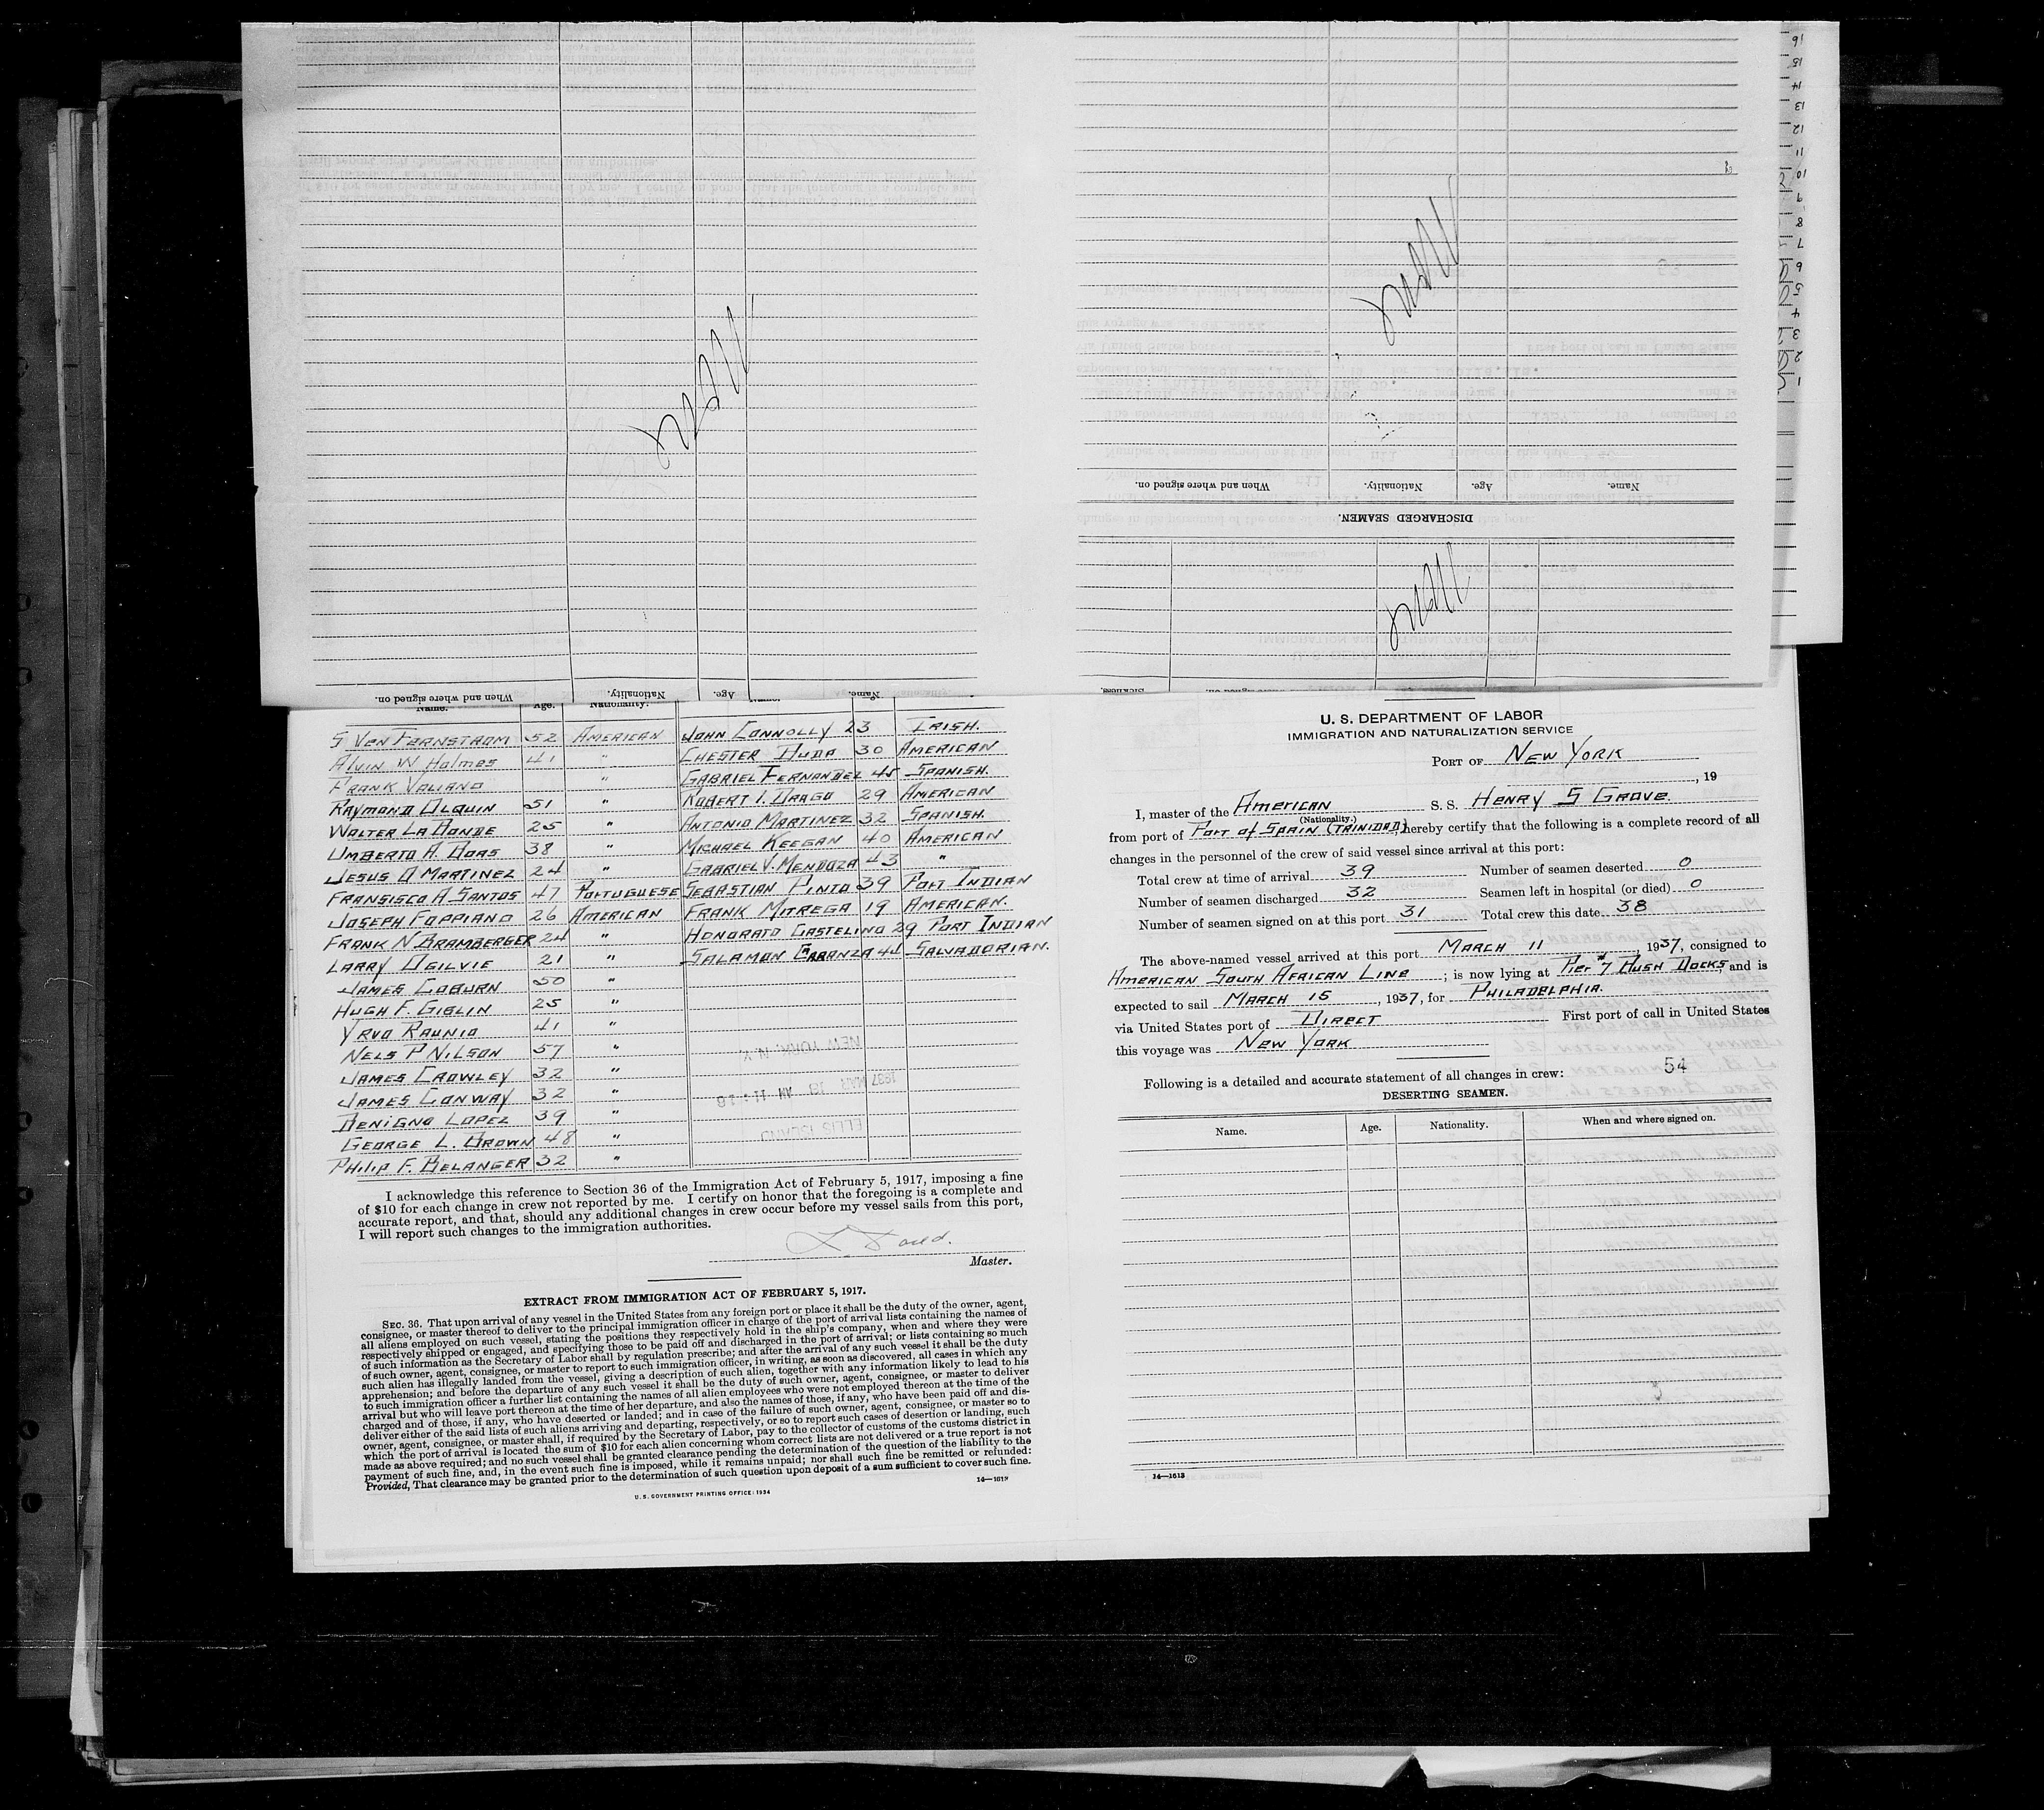 When and where signed on.
Nationality.
Age.
Name.
When and where signed on.
Nationality.
Age.
Name.
DISCHARGED SEAMEN.
16
15
14
13
12
11
10
9
8
7
6
5
4
3
2
1
Name. Age. Nationality.
S Ven Fernstrom 52 American John Connolly 23 Irish.
Alvin W Holmes 41 " Chester Duda 30 American
Frank Valiano " Gabriel Fernandez 45 Spanish.
Raymond Olquin 51 " Robert I. Drago 29 American
Walter La Bonde 25 " Antonio Martinez 32 Spanish.
Umberto A. Bors 38 " Michael Keegan 40 American
Jesus O Martinez 24 " Gabriel V. Mendoza 43 "
Fransisco A Santos 47 Portuguese Sebastian Pinto 39 Port Indian
Joseph Foppiano 26 American Frank Mitrega 19 American.
Frank N Bramberger 24 " Honorato Castelino 29 Port Indian
Larry Ogilvie 21 " Salamon Caranza 44 Salvadorian.
James Coburn 50 "
Hugh F. Giblin 25 "
Yrvo Raunio 41 "
Nels P Nilson 57 "
James Crowley 32 "
James Conway 32 "
Benigno Lopez 39 "
George L. Brown 48 "
Philip F. Belanger 32 "
NEW YORK, N.Y.
1937 MAR 18 AM 11:16
ELLIS ISLAND
I acknowledge this reference to Section 36 of the Immigration Act of February 5, 1917, imposing a fine
of $10 for each change in crew not reported by me. I certify on honor that the foregoing is a complete and
accurate report, and that, should any additional changes in crew occur before my vessel sails from this port,
I will report such changes to the immigration authorities.
Master.
EXTRACT FROM IMMIGRATION ACT OF FEBRUARY 5, 1917.
SEC. 36. That upon arrival of any vessel in the United States from any foreign port or place it shall be the duty of the owner, agent,
consignee, or master thereof to deliver to the principal immigration officer in charge of the port of arrival lists containing the names of
all aliens employed on such vessel, stating the positions they respectively hold in the ship's company, when and where they were
respectively shipped or engaged, and specifying those to be paid off and discharged in the port of arrival; or lists containing so much
of such information as the Secretary of Labor shall by regulation prescribe; and after the arrival of any such vessel it shall be the duty
of such owner, agent, consignee, or master to report to such immigration officer, in writing, as soon as discovered, all cases in which any
such alien has illegally landed from the vessel, giving a description of such alien, together with any information likely to lead to his
apprehension; and before the departure of any such vessel it shall be the duty of such owner, agent, consignee, or master to deliver
to such immigration officer a further list containing the names of all alien employees who were not employed thereon at the time of the
arrival but who will leave port thereon at the time of her departure, and also the names of those, if any, who have been paid off and dis-
charged and of those, if any, who have deserted or landed; and in case of the failure of such owner, agent, consignee, or master so to
deliver either of the said lists of such aliens arriving and departing, respectively, or so to report such cases of desertion or landing, such
owner, agent, consignee, or master shall, if required by the Secretary of Labor, pay to the collector of customs of the customs district in
which the port of arrival is located the sum of $10 for each alien concerning whom correct lists are not delivered or a true report is not
made as above required; and no such vessel shall be granted clearance pending the determination of the question of the liability to the
payment of such fine, and, in the event such fine is imposed, while it remains unpaid; nor shall such fine be remitted or refunded:
Provided, That clearance may be granted prior to the determination of such question upon deposit of a sum sufficient to cover such fine.
14—1613
U. S. GOVERNMENT PRINTING OFFICE: 1934
U. S. DEPARTMENT OF LABOR
IMMIGRATION AND NATURALIZATION SERVICE
PORT OF New York
, 19
I, master of the American S. S. Henry S Grove.
(Nationality.)
from port of Port of Spain (Trinidad), hereby certify that the following is a complete record of all
changes in the personnel of the crew of said vessel since arrival at this port:
Total crew at time of arrival 39 Number of seamen deserted 0
Number of seamen discharged 32 Seamen left in hospital (or died) 0
Number of seamen signed on at this port 31 Total crew this date 38
The above-named vessel arrived at this port March 11, 1937, consigned to
American South African Line; is now lying at Pier #7 Bush Docks, and is
expected to sail March 15, 1937, for Philadelphia.
via United States port of Direct First port of call in United States
this voyage was New York
54
Following is a detailed and accurate statement of all changes in crew:
DESERTING SEAMEN.
Name. Age. Nationality. When and where signed on.
14—1613